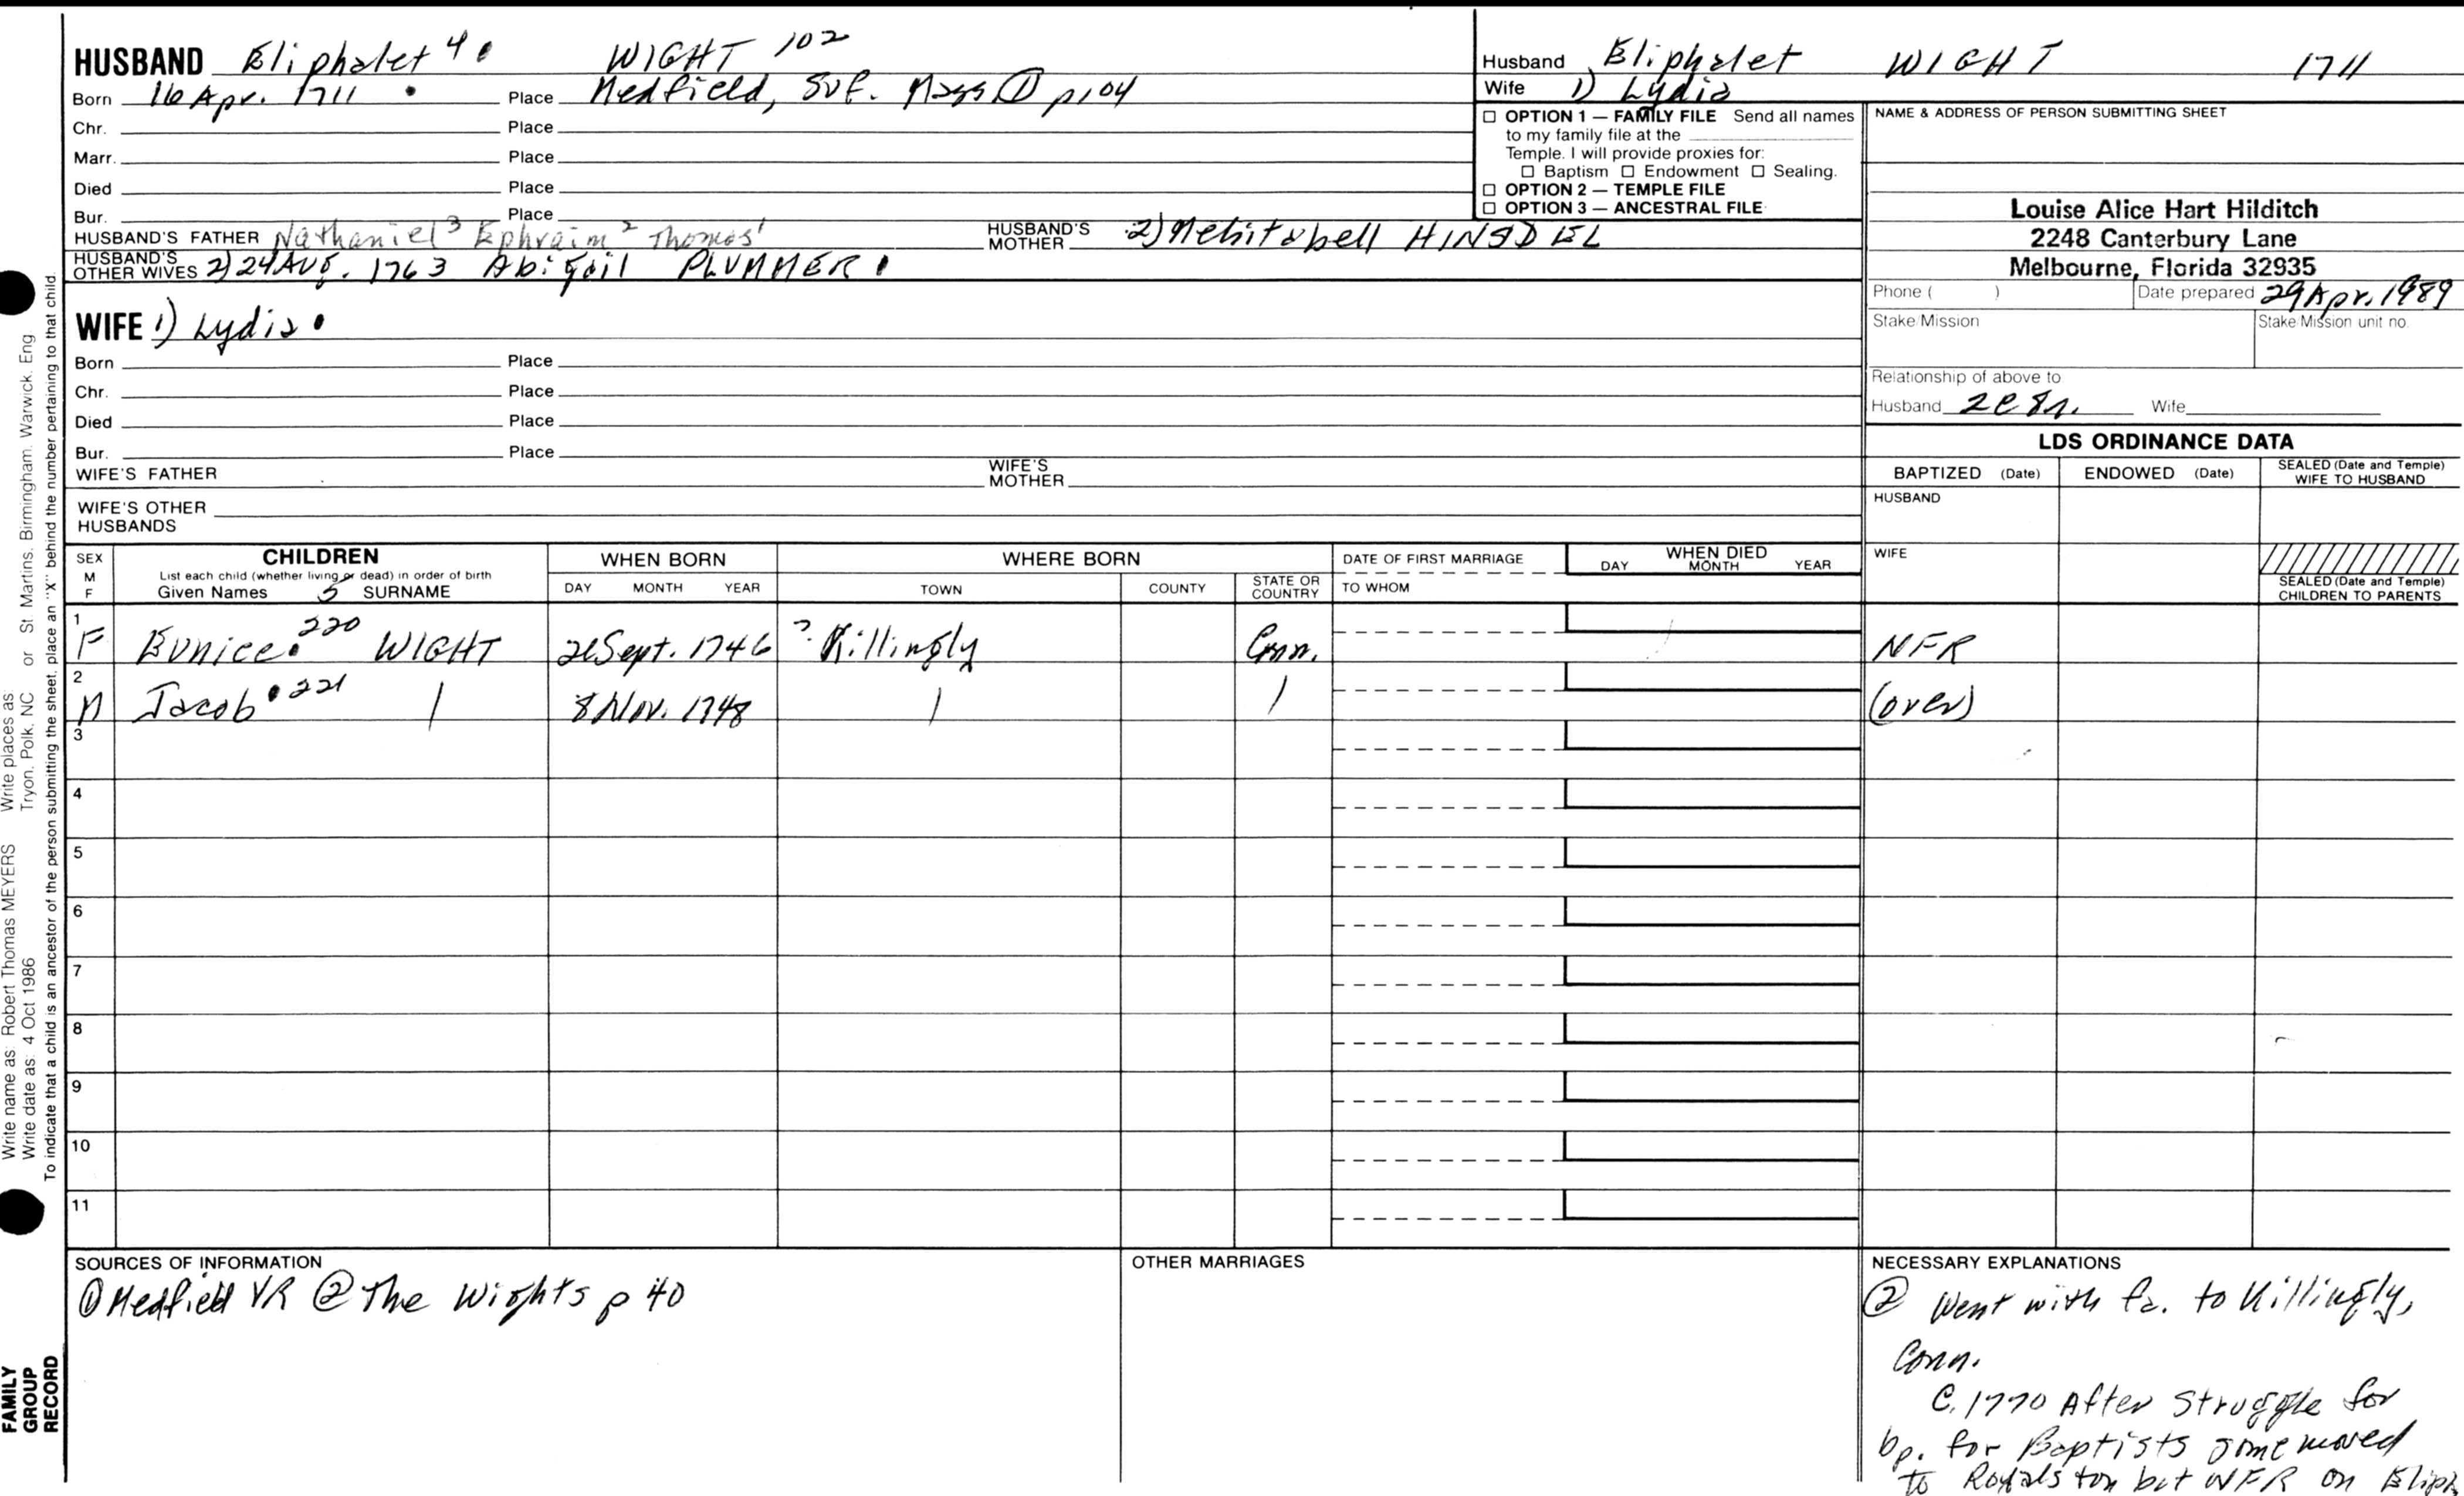 HUSBAND Eliphalet 4 WIGHT 102
Born 16 Apr. 1711 Place Medfield, Suf. Mass ① p104
Chr. Place
Marr. Place
Died Place
Bur. Place
HUSBAND'S FATHER Nathaniel 3 Ephraim 2 Thomas 1 HUSBAND'S MOTHER 2) Mehitabell HINSDEL
HUSBAND'S OTHER WIVES 2) 24 AUG. 1763 Abigail PLUMMER
WIFE 1) Lydia
Born Place
Chr. Place
Died Place
Bur. Place
WIFE'S FATHER WIFE'S MOTHER
WIFE'S OTHER HUSBANDS
Husband Eliphalet WIGHT 1711
Wife 1) Lydia
☐ OPTION 1 — FAMILY FILE Send all names
to my family file at the
Temple. I will provide proxies for:
☐ Baptism ☐ Endowment ☐ Sealing.
☐ OPTION 2 — TEMPLE FILE
☐ OPTION 3 — ANCESTRAL FILE
NAME & ADDRESS OF PERSON SUBMITTING SHEET
Louise Alice Hart Hilditch
2248 Canterbury Lane
Melbourne, Florida 32935
Phone ( ) Date prepared 29 Apr. 1989
Stake/Mission Stake/Mission unit no.
Relationship of above to
Husband Wife
LDS ORDINANCE DATA
BAPTIZED (Date) ENDOWED (Date) SEALED (Date and Temple) WIFE TO HUSBAND
HUSBAND
WIFE
SEALED (Date and Temple)
CHILDREN TO PARENTS
SEX M F
CHILDREN
List each child (whether living or dead) in order of birth
Given Names 5 SURNAME
WHEN BORN
DAY MONTH YEAR
WHERE BORN
TOWN COUNTY STATE OR COUNTRY
DATE OF FIRST MARRIAGE
TO WHOM
WHEN DIED
DAY MONTH YEAR
1 F Eunice 220 WIGHT Sept. 1746 ? Killingly Conn. NFR
2 M Jacob 221 | 8 Nov. 1748 | | (over)
3
4
5
6
7
8
9
10
11
SOURCES OF INFORMATION
① Medfield VR ② The Wights p 40
OTHER MARRIAGES
NECESSARY EXPLANATIONS
② Went with fa. to Killingly,
Conn.
C. 1770 After struggle for
bp. for Baptists some moved
to Royalston but NFR on Eliph
Write name as: Robert Thomas MEYERS Write places as
Write date as: 4 Oct 1986 Tryon, Polk, NC or St Martins, Birmingham, Warwick, Eng
To indicate that a child is an ancestor of the person submitting the sheet, place an "X" behind the number pertaining to that child.
FAMILY
GROUP
RECORD